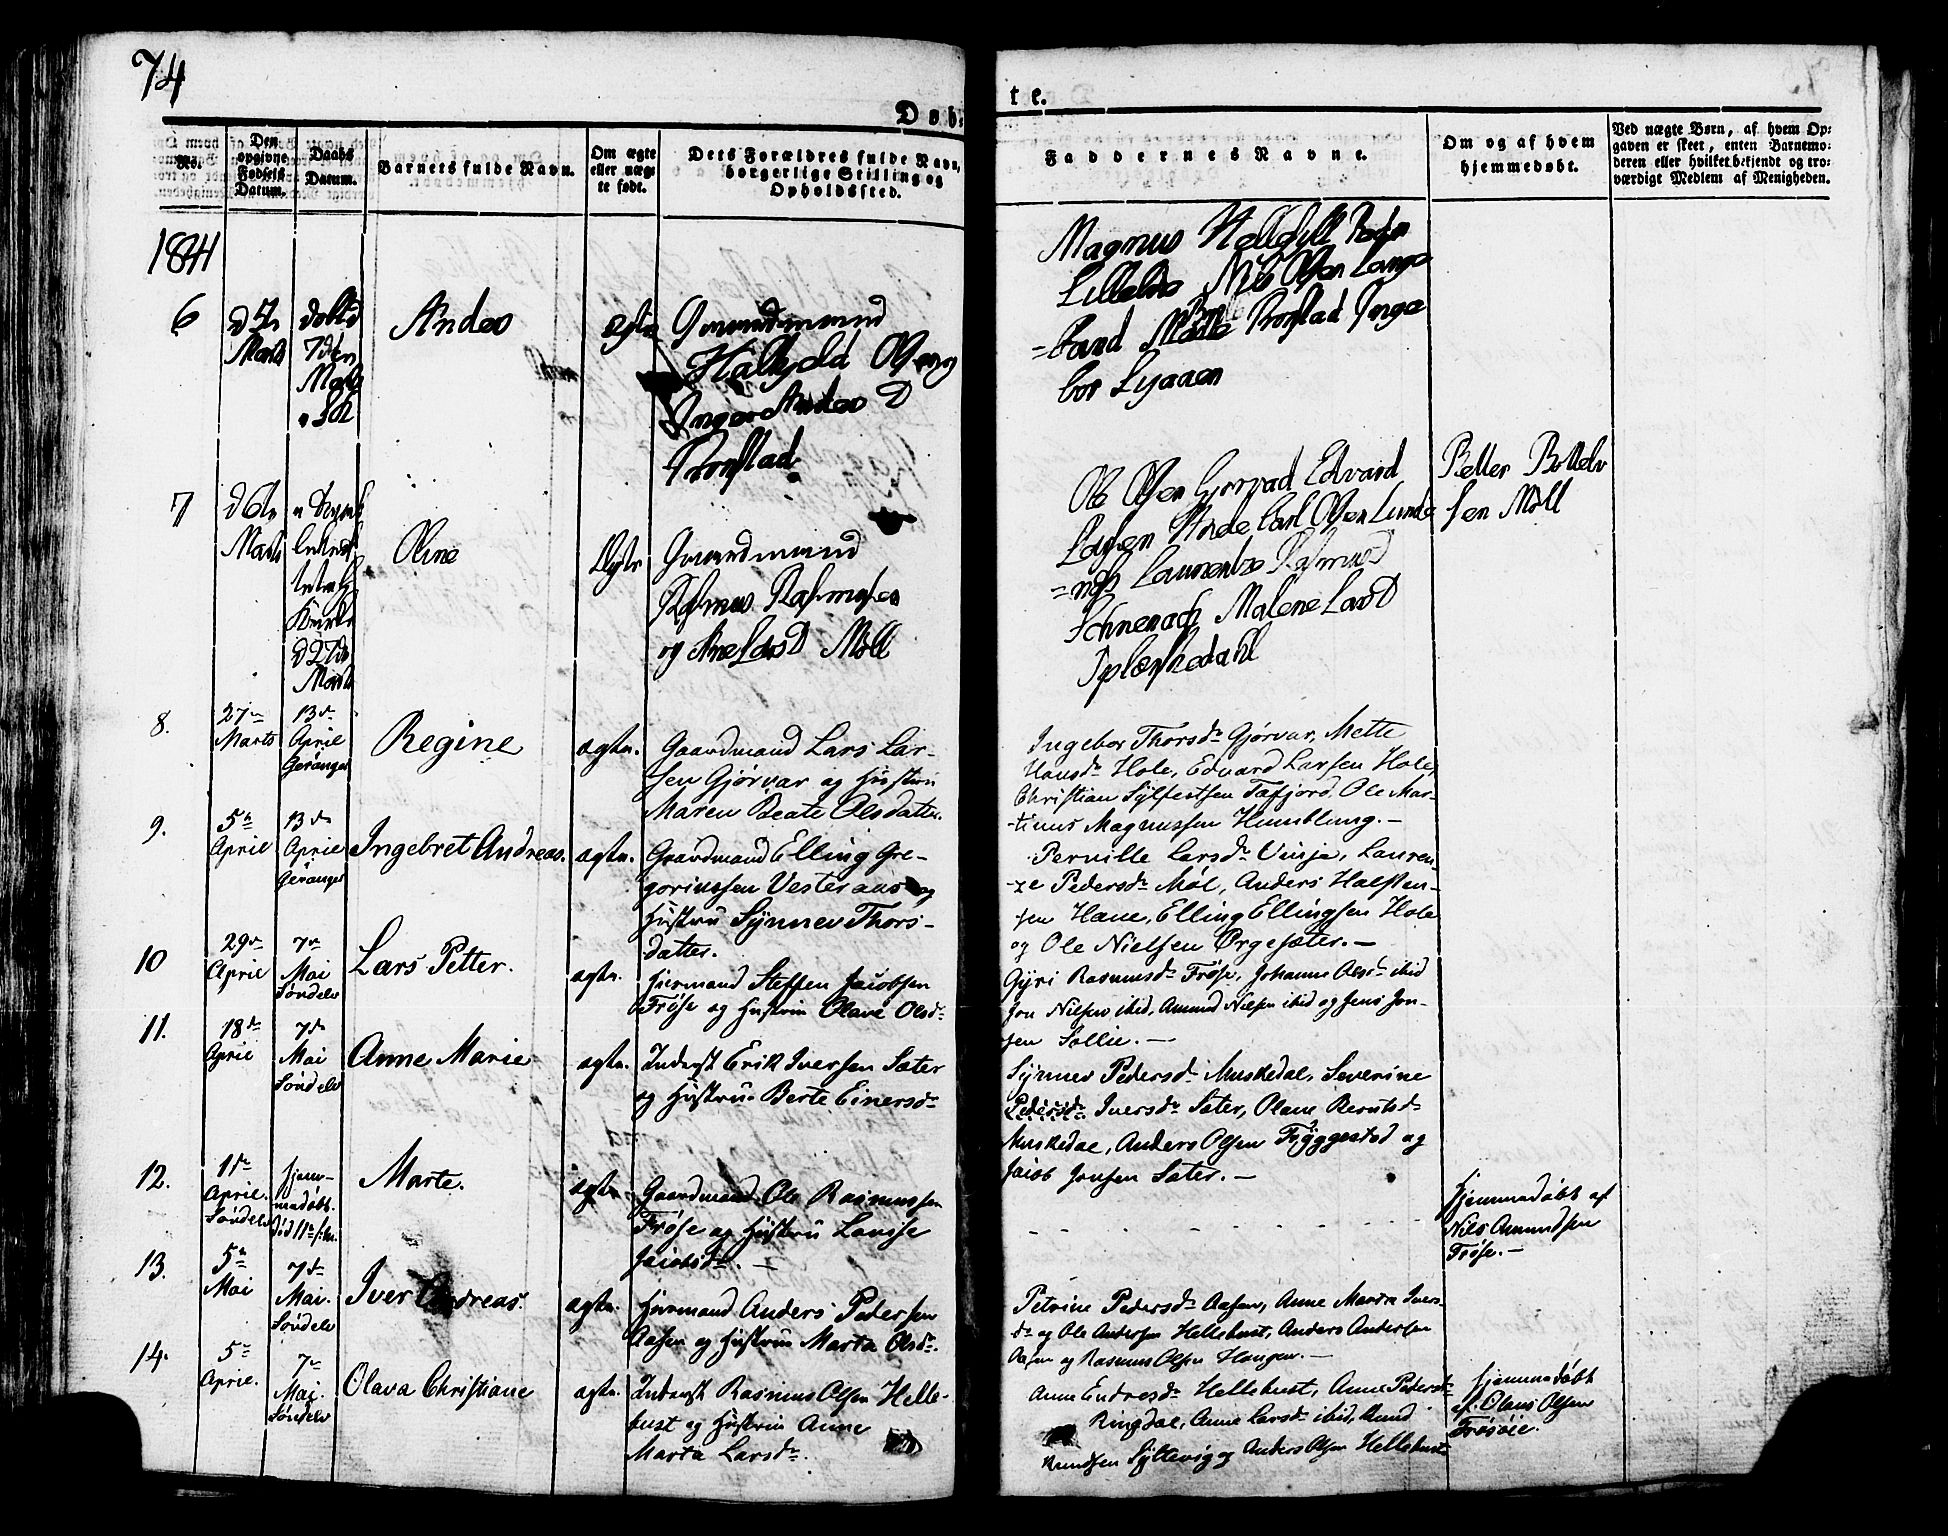 74
Døb-
te.
No.
Den opgivne Fødsels Datum.
Daabs Datum.
Barnets fulde Navn.
Om ægte eller uægte født.
Dets Forældres fulde Navn, borgerlige Stilling og Opholdssted.
Faddernes Navne.
Om og af hvem hjemmedøbt.
Ved uægte Børn, af hvem Opgaven er skeet, enten Barnemoderen eller hvilket bekjendt og troværdigt Medlem af Menigheden.
1841
6
d 5te
Marts
døbt d
7den
Marts
Andes
ægte
Gaardmand
Halkjeld Olsen og
Inger Andes D
Tronstad
Magnus Hellesill
Nils Olsen Lange
-land Tronstad Inge
bor
7
d 6te
Marts
d 27de
Marts
Oline
Gaardmand
Rasmus Rasmusen
og Ane Lars D Möll
Ole Olsen Gjorvad Edvard
Larsen Hole Carl Olsen Lunde
Laurentze Rasmus D
Malene Lars D
Petter Pettelv
sen Möll
8.
27de
Marts
13de
April
Geranger
Regine
ægte.
Gaardmand Lars Lar-
sen Gjörvar og Hustru
Maren Beate Olsdatter.
Ingebor Thorsdr Gjørvar, Mette
Hansdr Hole, Edvard Larsen Hole,
Christian Sylfestsen Tafjord Ole Mar-
-tinus Magnussen Humblung.-
9.
5te
April
13de
April
Geranger
Ingebret Andreas.
ægte.
Gaardmand Elling Gre-
goriussen Vesteraas og
Hustru Synnev Thors-
datter.
Pernille Larsdr Vinje, Lauren-
-ze Pedersdr Möl, Anders Halsten-
sen Hane, Elling Ellingsen Hole
og Ole Nielsen Ørgesæter.-
10
29de
April
7de
Mai
Søndelv
Lars Petter.
ægte.
Huusmand Steffen Jacobsen
Frøse og Hustru Olave Olsdr
Gyri Rasmusdr Frøse, Johanne Olsdr ibid
Jon Nielsen ibid, Amund Nielsen ibid og Jens Jon-
sen Sollie.-
11.
18de
April
7de
Mai
Søndelv
Anne Marie
ægte.
Inderst Erik Iversen Sæter
og Hustru Berte Einersdr
Synnev Pedersdr Muskedal, Severine
Pedersdr Iversdr Sæter, Olane Berntsdr
Muskedal, Anders Olsen Fryggestad og
Jacob Jonsen Sæter.-
12.
1de
April.
Søndelv
Hjem-
medøbt.
død 11te s.m.
Marte.
ægte.
Gaardmand Ole Rasmussen
Frøse og Hustru Lovise
Jacobsdr.-
Hjemmedøbt af
Nils Amundsen
Frøse.-
13.
5te
Mai
7de
Mai.
Søndelv
Iver Andreas.
ægte.
Huusmand Anders Pedersen
Aasen og Hustru Marta Olsdr.
Petrine Pedersdr Aasen, Anne Marta Ivers-
dr og Ole Andersen Hellebust, Anders Andersen
Aasen og Rasmus Olsen Haugen.-
14.
5te
April.
7de
Mai.
Søndelv
Olava Christiane
ægte.
Inderst Rasmus Olsen Helle-
bust og Hustru Anne
Marta Larsdr.
Anne Endresdr Hellebust, Anne Pedersdr
Ringdal, Anne Larsdr ibid, Knud
Knudsen Syltevig og Anders Olsen Hellebust
Hjemmedøbt
af Olaus Olsen
Frøsøie.